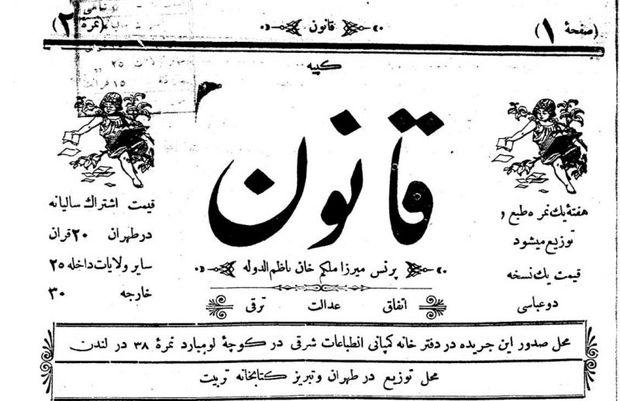 (صفحهٔ ۱) قانون (نمرهٔ ۲)
کپیه
قانون
هفته یک نمره طبع و
توزیع میشود
قیمت یک نسخه
دو عباسی
پرنس میرزا ملکم خان ناظم الدوله
اتفاق عدالت ترقی
قیمت اشتراک سالیانه
در طهران ۲۰ قران
سایر ولایات داخله ۲۵
خارجه ۳۰
محل صدور این جریده در دفتر خانه کمپانی انطباعات شرقی در کوچهٔ لومبارد نمرهٔ ۳۸ در لندن
محل توزیع در طهران و تبریز کتابخانه تربیت